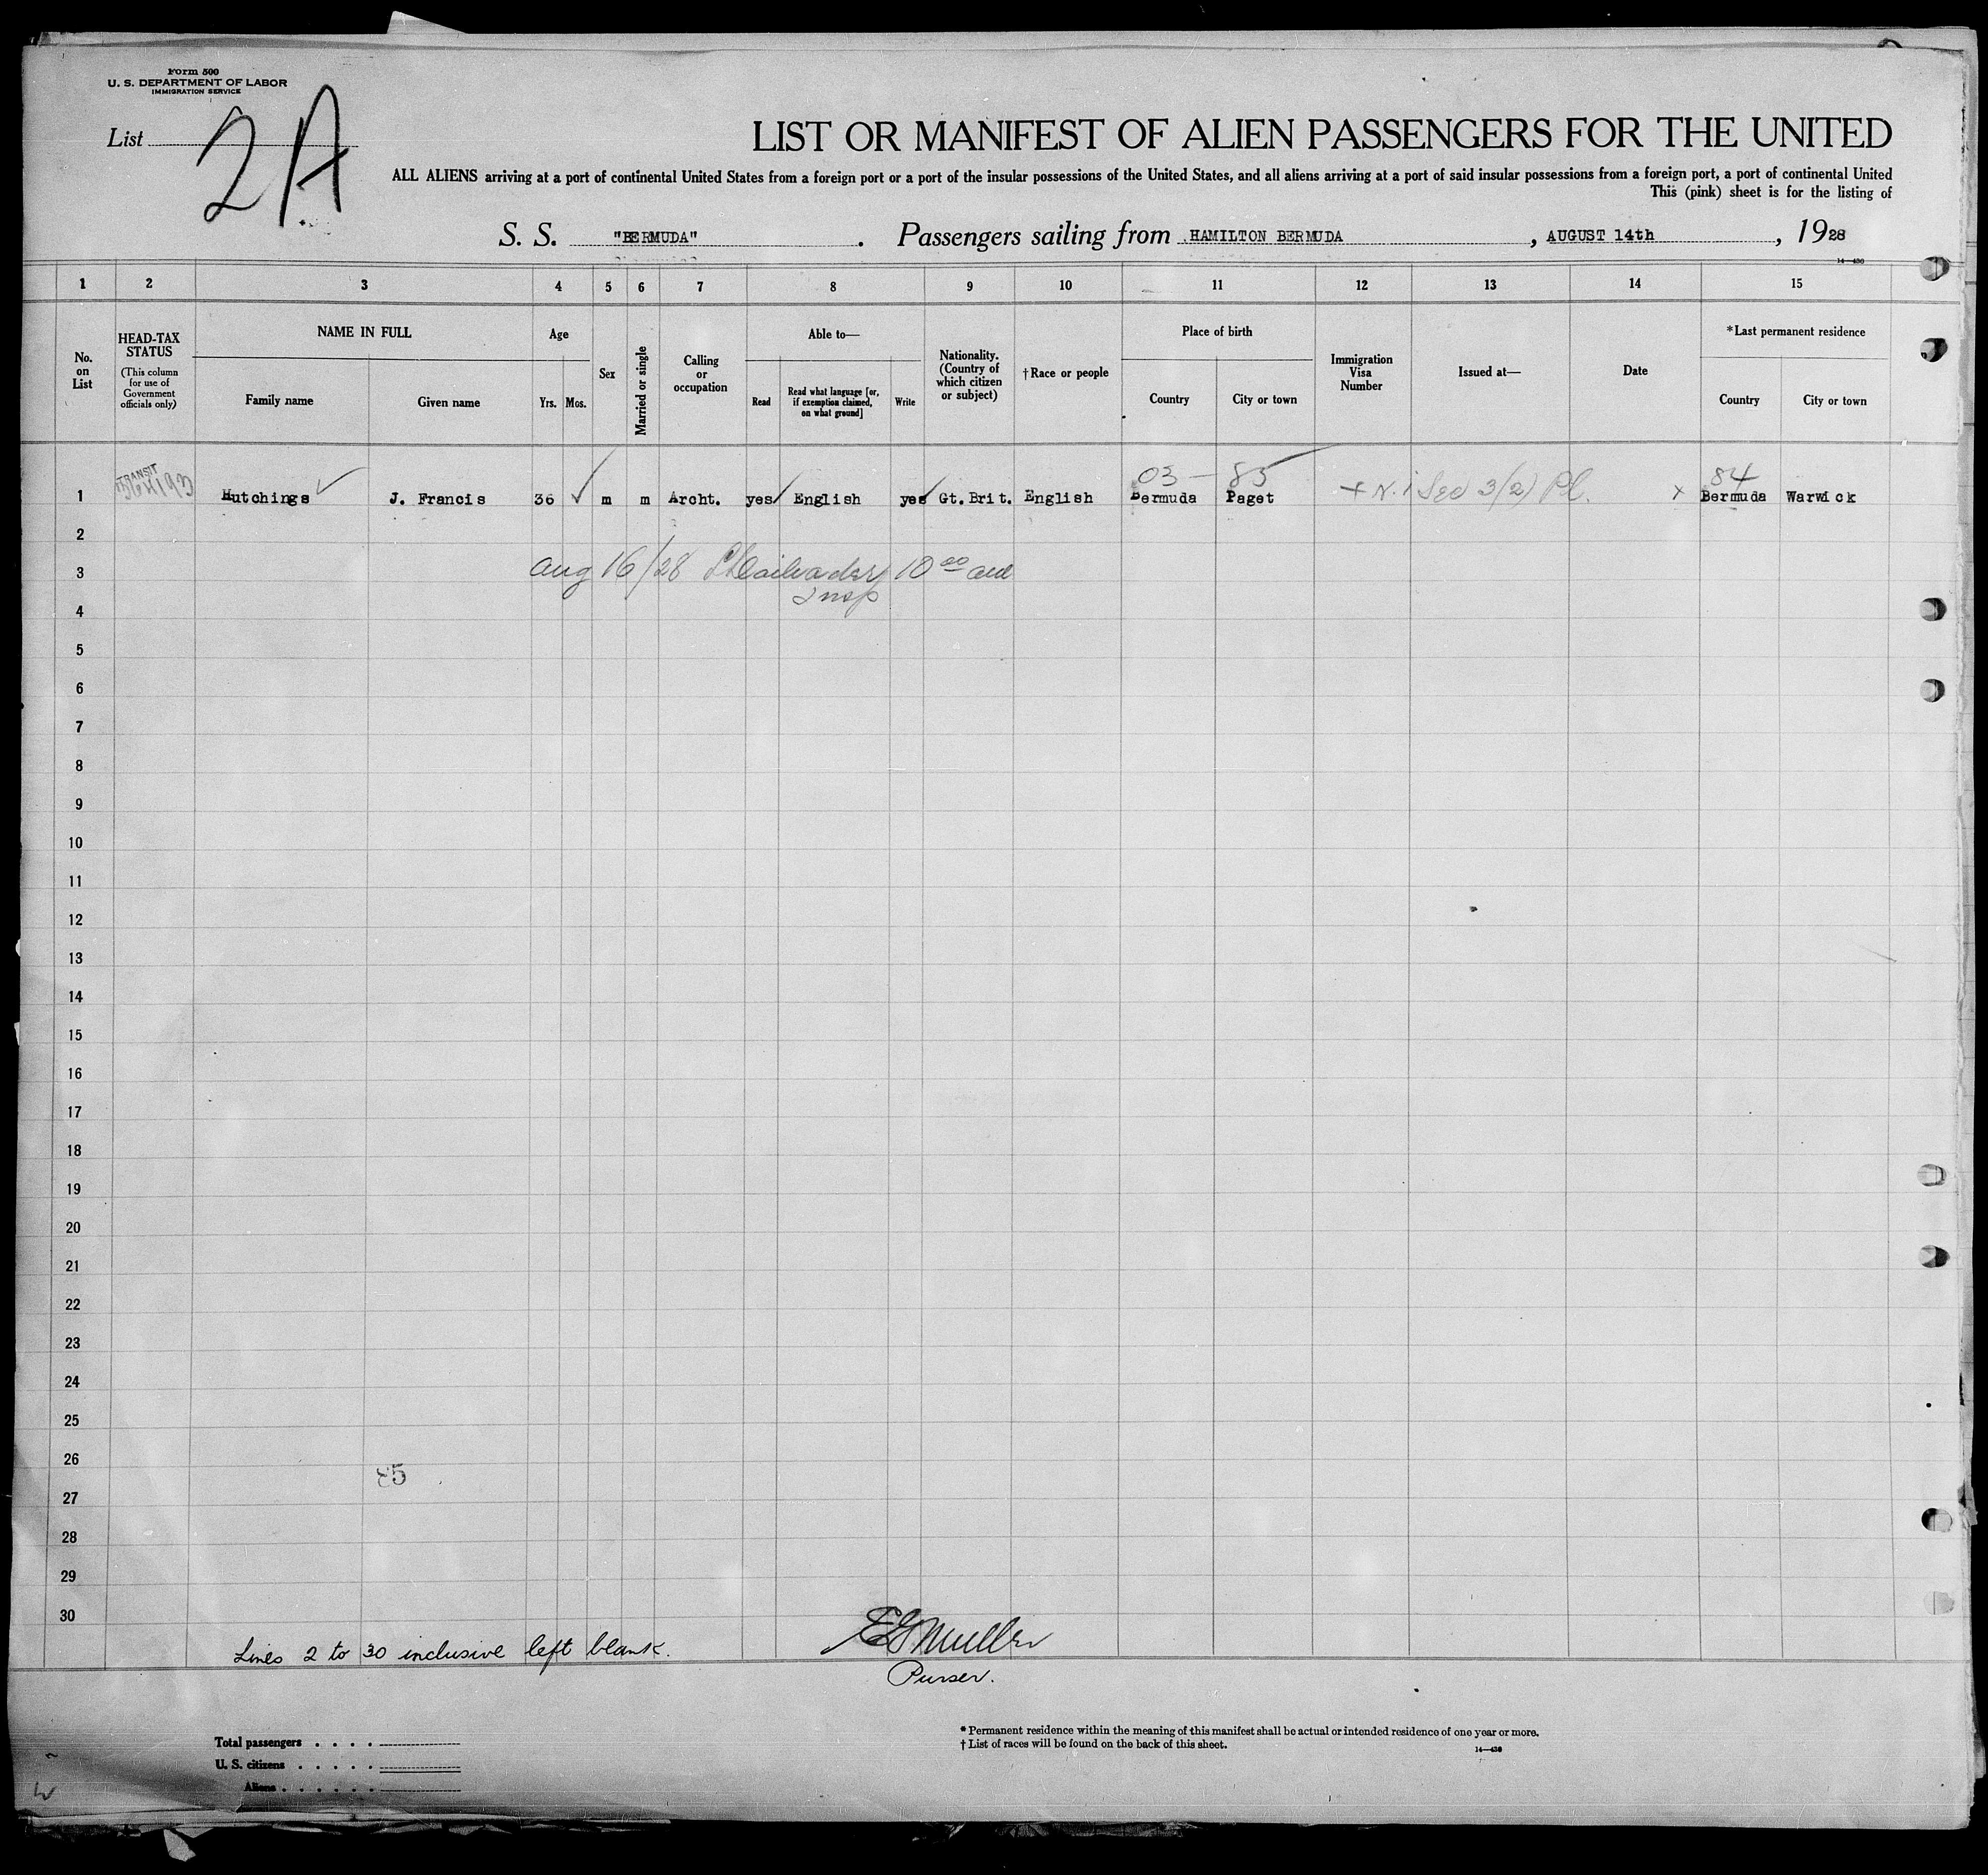 Form 500
U. S. DEPARTMENT OF LABOR
IMMIGRATION SERVICE
List 2A
LIST OR MANIFEST OF ALIEN PASSENGERS FOR THE UNITED
ALL ALIENS arriving at a port of continental United States from a foreign port or a port of the insular possessions of the United States, and all aliens arriving at a port of said insular possessions from a foreign port, a port of continental United
This (pink) sheet is for the listing of
S. S. "BERMUDA" . Passengers sailing from HAMILTON BERMUDA , AUGUST 14th , 1928
14—430
1 2 3 4 5 6 7 8 9 10 11 12 13 14 15
No. on List
HEAD-TAX STATUS
(This column for use of Government officials only)
NAME IN FULL
Family name
Given name
Age
Yrs.
Mos.
Sex
Married or single
Calling or occupation
Able to—
Read
Read what language [or, if exemption claimed, on what ground]
Write
Nationality. (Country of which citizen or subject)
†Race or people
Place of birth
Country
City or town
Immigration Visa Number
Issued at—
Date
*Last permanent residence
Country
City or town
TRANSIT
03 — 85 84
1 Hutchings J. Francis 36 m m Archt. yes English yes Gt.Brit. English Bermuda Paget Sec 3(2) Bermuda Warwick
2
3 Aug 16/28 10 00
Insp
4
5
6
7
8
9
10
11
12
13
14
15
16
17
18
19
20
21
22
23
24
25
26
85
27
28
29
30
Lines 2 to 30 inclusive left blank. EG Muller
Purser.
Total passengers . . . .
U. S. citizens . . . . .
Aliens . . . . . .
* Permanent residence within the meaning of this manifest shall be actual or intended residence of one year or more.
† List of races will be found on the back of this sheet.
14—430